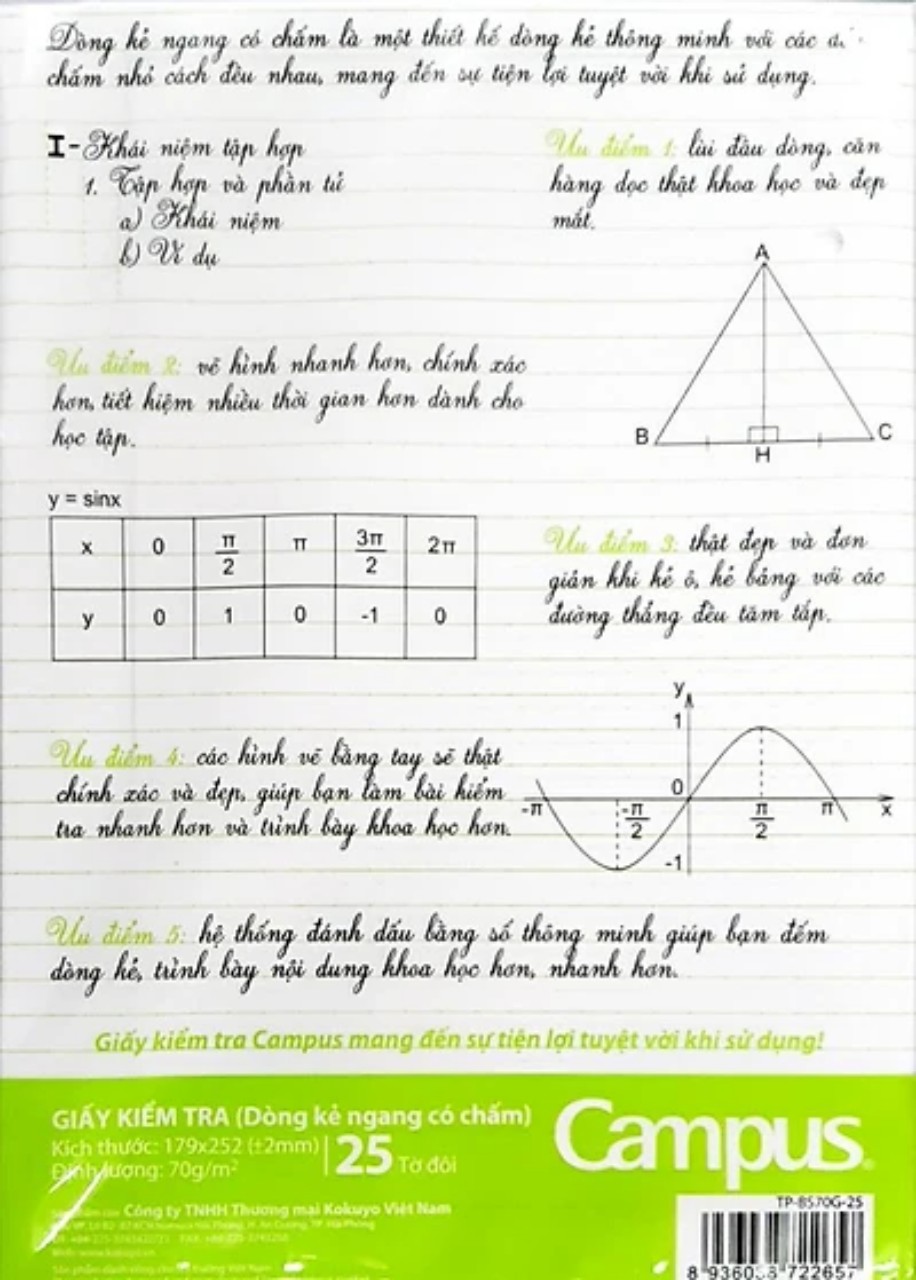 Dòng kẻ ngang có chấm là một thiết kế dòng kẻ thông minh với các
chấm nhỏ cách đều nhau, mang đến sự tiện lợi tuyệt vời khi sử dụng.
I- Khái niệm tập hợp
1. Tập hợp và phần tử
a) Khái niệm
b) Ví dụ
Ưu điểm 1: lùi đầu dòng, căn
hàng dọc thật khoa học và đẹp
mắt.
A
B
H
C
Ưu điểm 2: vẽ hình nhanh hơn, chính xác
hơn, tiết kiệm nhiều thời gian hơn dành cho
học tập.
y = sinx
x 0 π/2 π 3π/2 2π
y 0 1 0 -1 0
Ưu điểm 3: thật đẹp và đơn
giản khi kẻ ô, kẻ bảng với các
đường thẳng đều tăm tắp.
Ưu điểm 4: các hình vẽ bằng tay sẽ thật
chính xác và đẹp, giúp bạn làm bài kiểm
tra nhanh hơn và trình bày khoa học hơn.
y
1
0
-π -π/2 π/2 π x
-1
Ưu điểm 5: hệ thống đánh dấu bằng số thông minh giúp bạn đếm
dòng kẻ, trình bày nội dung khoa học hơn, nhanh hơn.
Giấy kiểm tra Campus mang đến sự tiện lợi tuyệt vời khi sử dụng!
GIẤY KIỂM TRA (Dòng kẻ ngang có chấm)
Kích thước: 179x252 (±2mm)
Định lượng: 70g/m²
25 Tờ đôi
Campus
Công ty TNHH Thương mại Kokuyo Việt Nam
TP-B570G-25
8 936038 722657